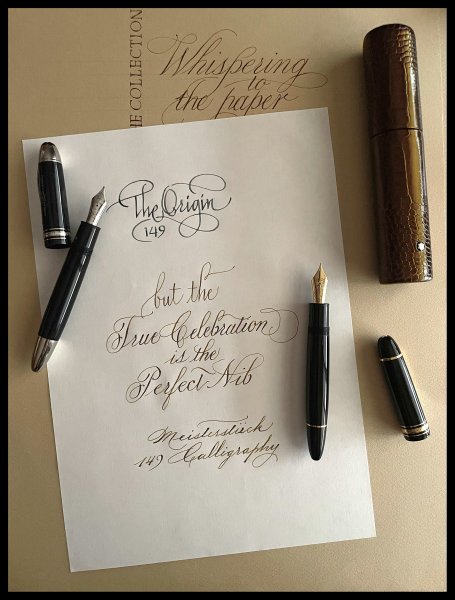 THE COLLECTION
Whispering
to
the paper
The Origin
149
but the
True Celebration
is the
Perfect Nib
Meisterstück
149 Calligraphy